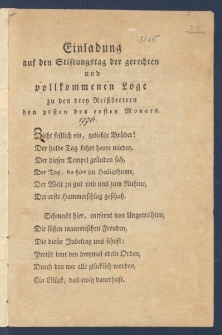 Einladung
auf den Stiftungstag der gerechten
und
vollkommenen Loge
zu den drey Reißbrettern
den 31sten des ersten Monats.
1776.
Zieht festlich ein, geliebte Brüder!
Der holde Tag kehrt heute wieder,
Der diesen Tempel gründen sah,
Der Tag, da hier im Heiligthume,
Der Welt zu gut und uns zum Ruhme,
Der erste Hammerschlag geschah.
Schmeckt hier, entfernt von Ungeweihten,
Die süßen maurerischen Freuden,
Die dieser Jubeltag uns schaft:
Preiset laut den dreymal edeln Orden,
Durch den wir alle glücklich worden,
Ein Glück, das ewig dauerhaft.